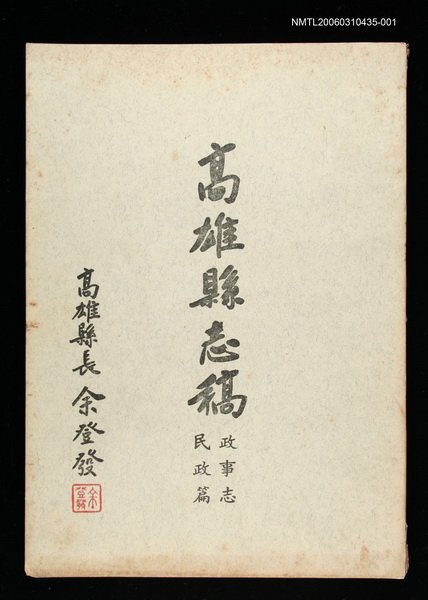 NMTL20060310435-001
高雄縣志稿
政事志
民政篇
高雄縣長 余登發
余登發